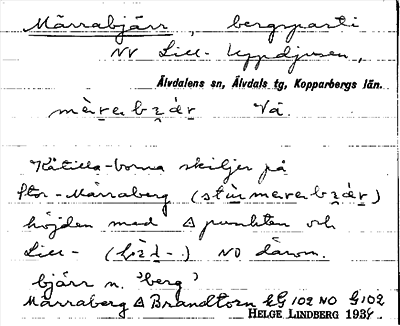 Märrabjärr, bergsparti
NV Lill-Uppdjusen,
Älvdalens sn, Älvdals tg, Kopparbergs län.
Vå.
Kåtilla-borna skiljer på
Stor-Märraberg
höjden med △ punkten och
Lill- NO därom.
bjärr n. 'berg'
Märraberg △ Brandtorn EG 102 NO G 102
HELGE LINDBERG 1934